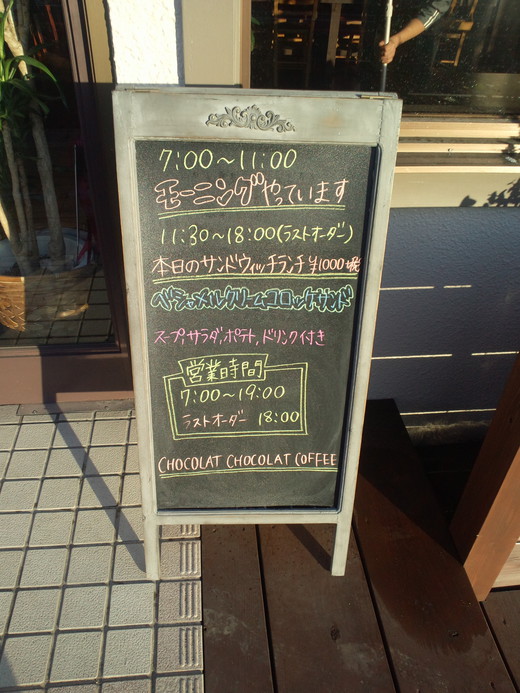 7:00〜11:00
モーニングやっています
11:30〜18:00(ラストオーダー)
本日のサンドウィッチランチ ¥1000+税
ベシャメルクリームコロッケサンド
スープ,サラダ,ポテト,ドリンク付き
営業時間
7:00〜19:00
ラストオーダー 18:00
CHOCOLAT CHOCOLAT COFFEE